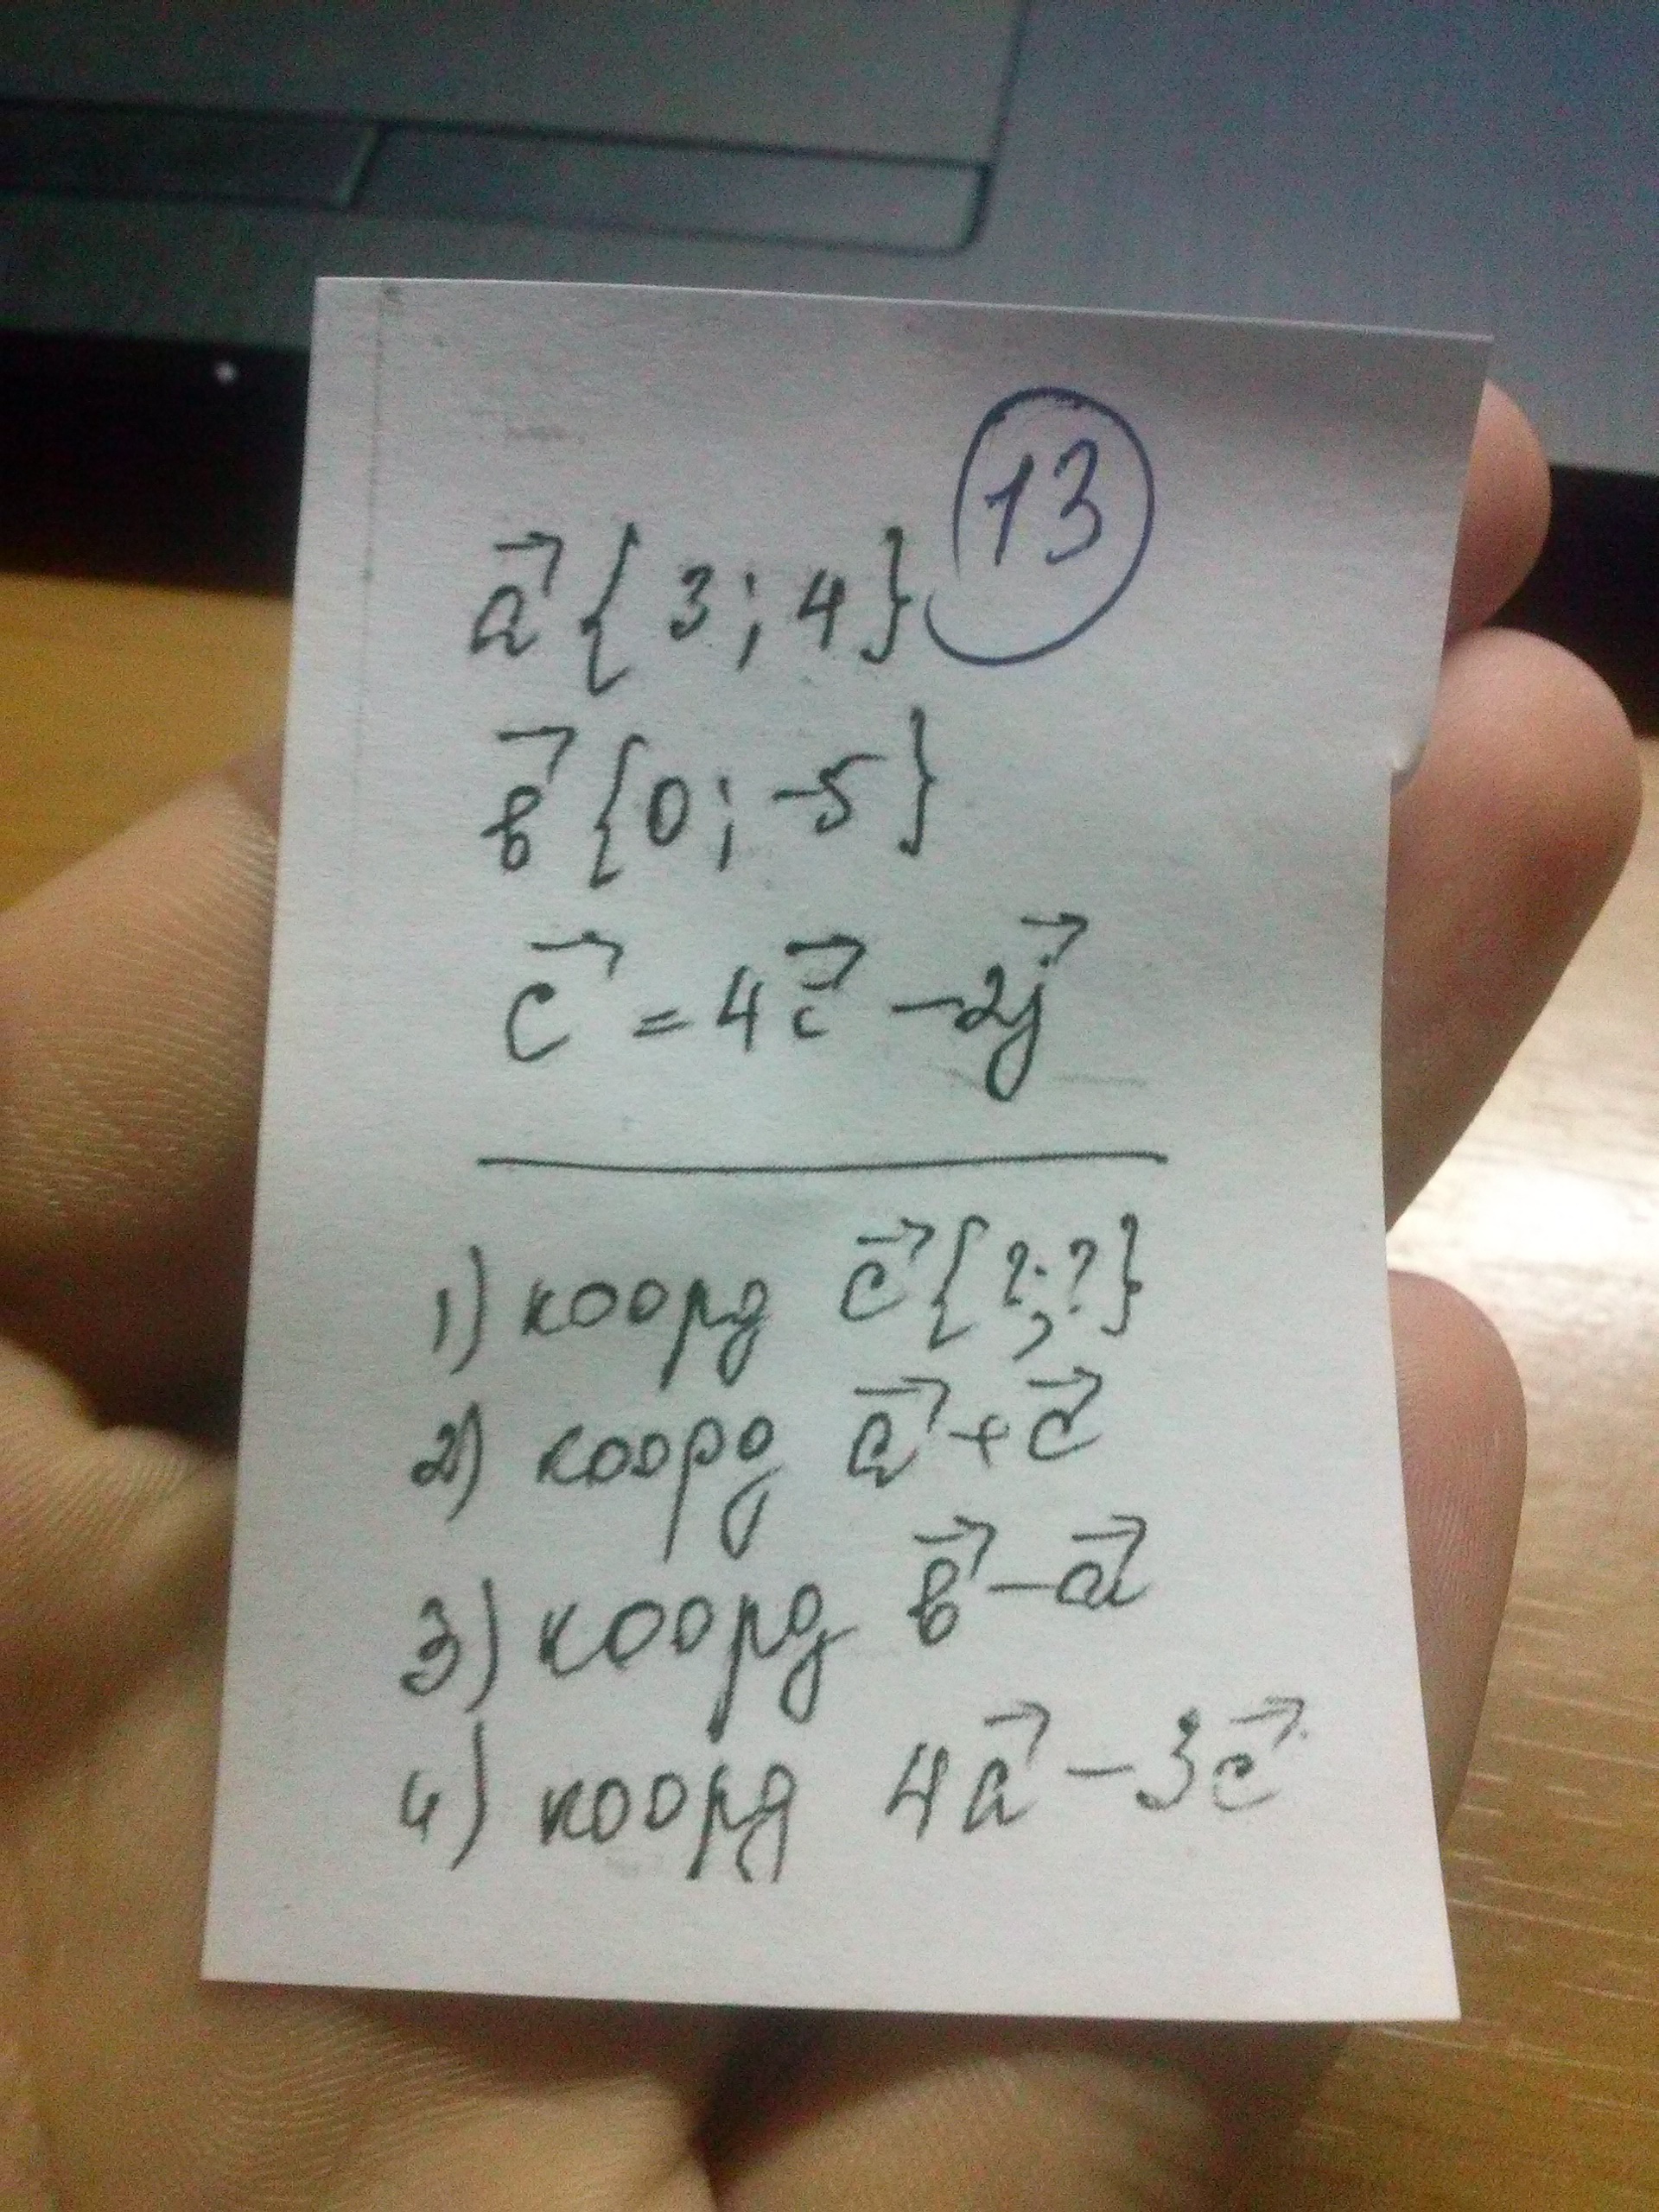 13
a⃗ { 3 ; 4 }
в⃗ { 0 ; -5 }
c⃗ = 4i⃗ - 2j⃗
1) коорд c⃗ { ? ; ? }
2) коорд a⃗ + c⃗
3) коорд в⃗ - a⃗
4) коорд 4a⃗ - 3c⃗